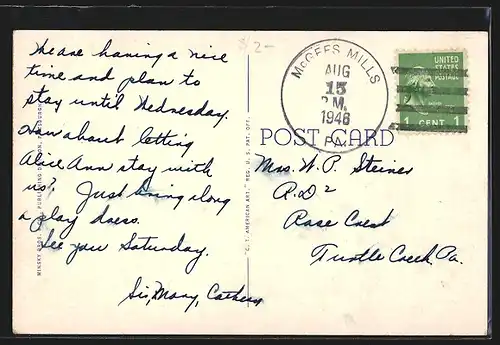 We are having a nice
time and plan to
stay until Wednesday.
How about letting
Alice Ann stay with
us? Just bring along
a play dress.
See you Saturday.
Sis, Mary,
$2-
McGEES MILLS
AUG
15
P.M.
1946
PA.
UNITED
STATES
POSTAGE
1 CENT 1
POST CARD
Mrs. W. P. Steiner
R.D 2
Rose Crest
Turtle Creek, Pa.
"C. T. AMERICAN ART," REG. U. S. PAT. OFF.
MINSKY BROS. PUBLISHING DIVISION,